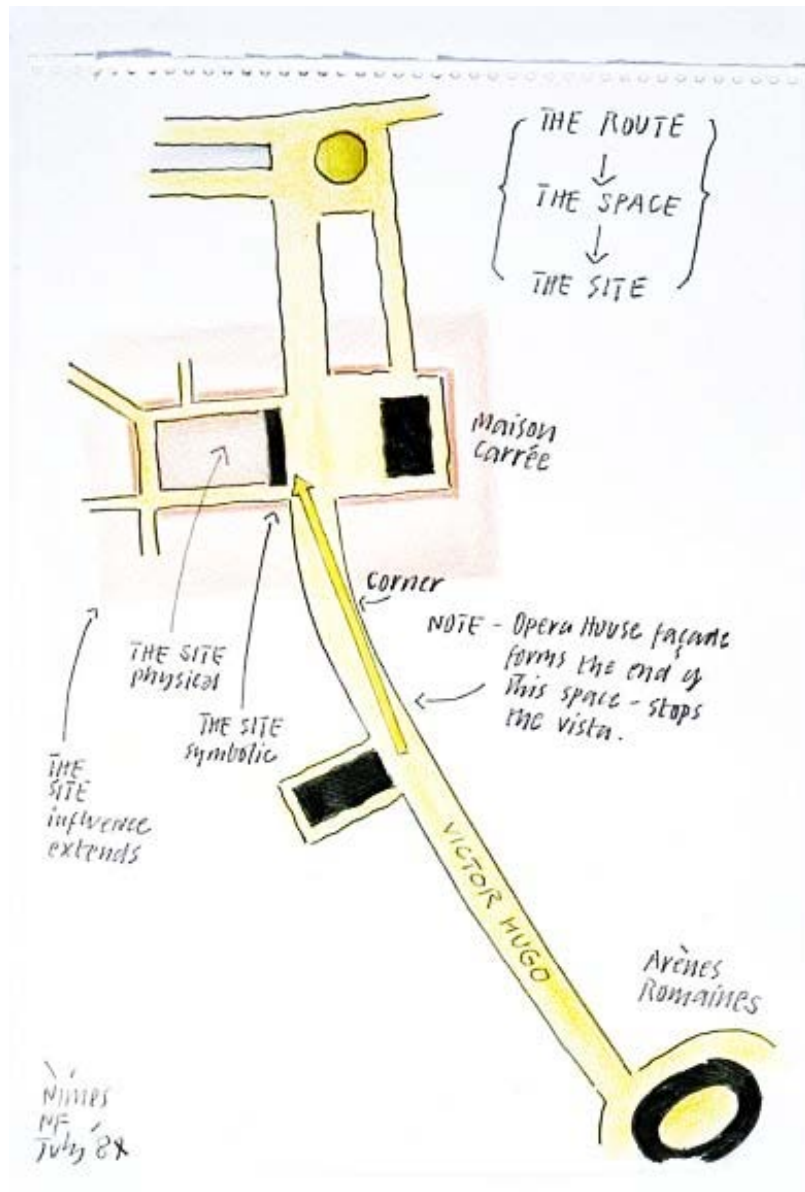 THE ROUTE
THE SPACE
THE SITE
Maison
Carrée
corner
NOTE - Opera House façade
forms the end of
this space - stops
the vista.
THE SITE
physical
THE SITE
symbolic
THE
SITE
influence
extends
VICTOR HUGO
Arènes
Romaines
Nîmes
NF
July